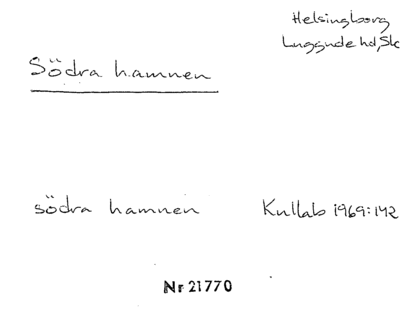 Helsingborg
Luggude hd, Sk
Södra hamnen
södra hamnen Kullab 1969:142
Nr 21770